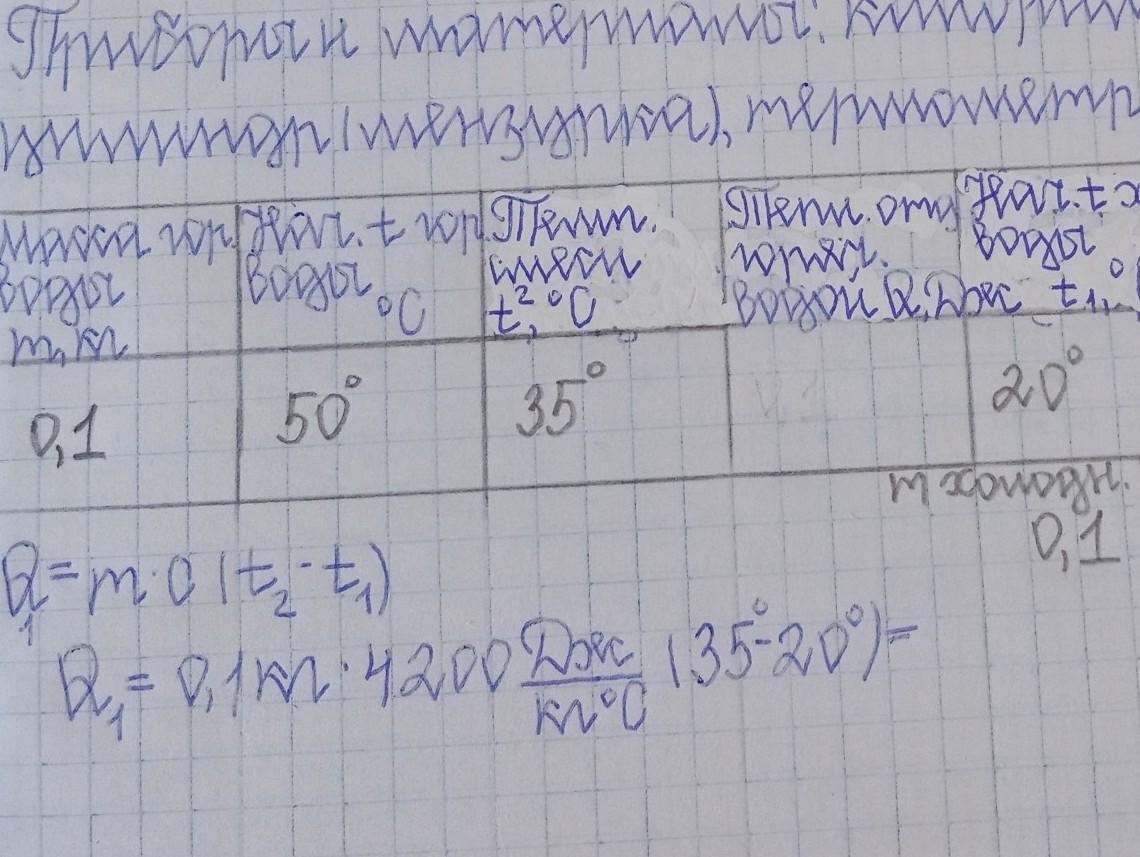 Приборы и материалы: калори
цилиндр (мензурка), термометр
Масса гор. воды m, кг
Нач. t гор воды, °C
Темп. смеси t2, °C
Тепл. отд горяч. водой Q, Дж
Нач. t х воды t1, °
0,1
50°
35°
20°
m холодн.
0,1
Q1 = m · c (t2 - t1)
Q1 = 0,1 кг · 4200 Дж/кг°C (35° - 20°) =